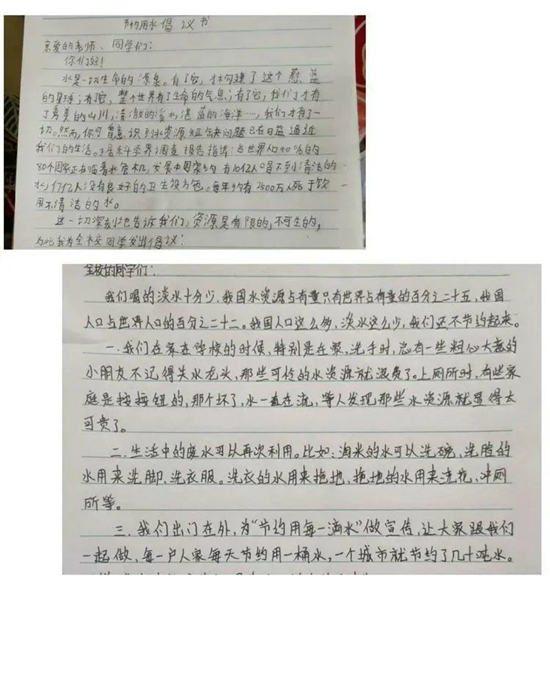 节约用水倡议书
亲爱的老师、同学们：
你们好！
水是一切生命的源泉。有了它，才构建了这个蔚蓝
的星球；有了它，整个世界有了生命的气息；有了它，我们才有
了秀美的山川，清澈的溪水，湛蓝的海洋……，我们才有了一
切。然而，你可意识到水资源短缺问题已在日益逼近
我们的生活。
80个国家正在 有10亿人口得不到清洁的
水，17亿人没有良好的卫生设 。每年约有2500万人死于饮
用不清洁的水。
这一切深刻地告诉我们：资源是有限的，不可生的，
为此我为全 同学发出倡议：
全校的同学们：
我们喝的淡水十分少，我国水资源占有量只有世界占有量的百分之二十五，我国
人口占世界人口的百分之二十二。我国人口这么多，淡水这么少，我们还不节约起来。
一、我们在家在学校的时候，特别是在家，洗手时，总有一些粗心大意的
小朋友不记得关水龙头，那些可怜的水资源就浪费了。上厕所时，有些家
庭是按按钮的，那个坏了，水一直在流，等人发现那些水资源就显得太
可贵了。
二、生活中的废水可以再次利用。比如：淘米的水可以洗碗，洗脸的
水用来洗脚、洗衣服。洗衣的水用来拖地，拖地的水用来浇花，冲厕
所等。
三、我们出门在外，为“节约用每一滴水”做宣传，让大家跟我们
一起做，每一户人家每天节约用一桶水，一个城市就节约了几十吨水。